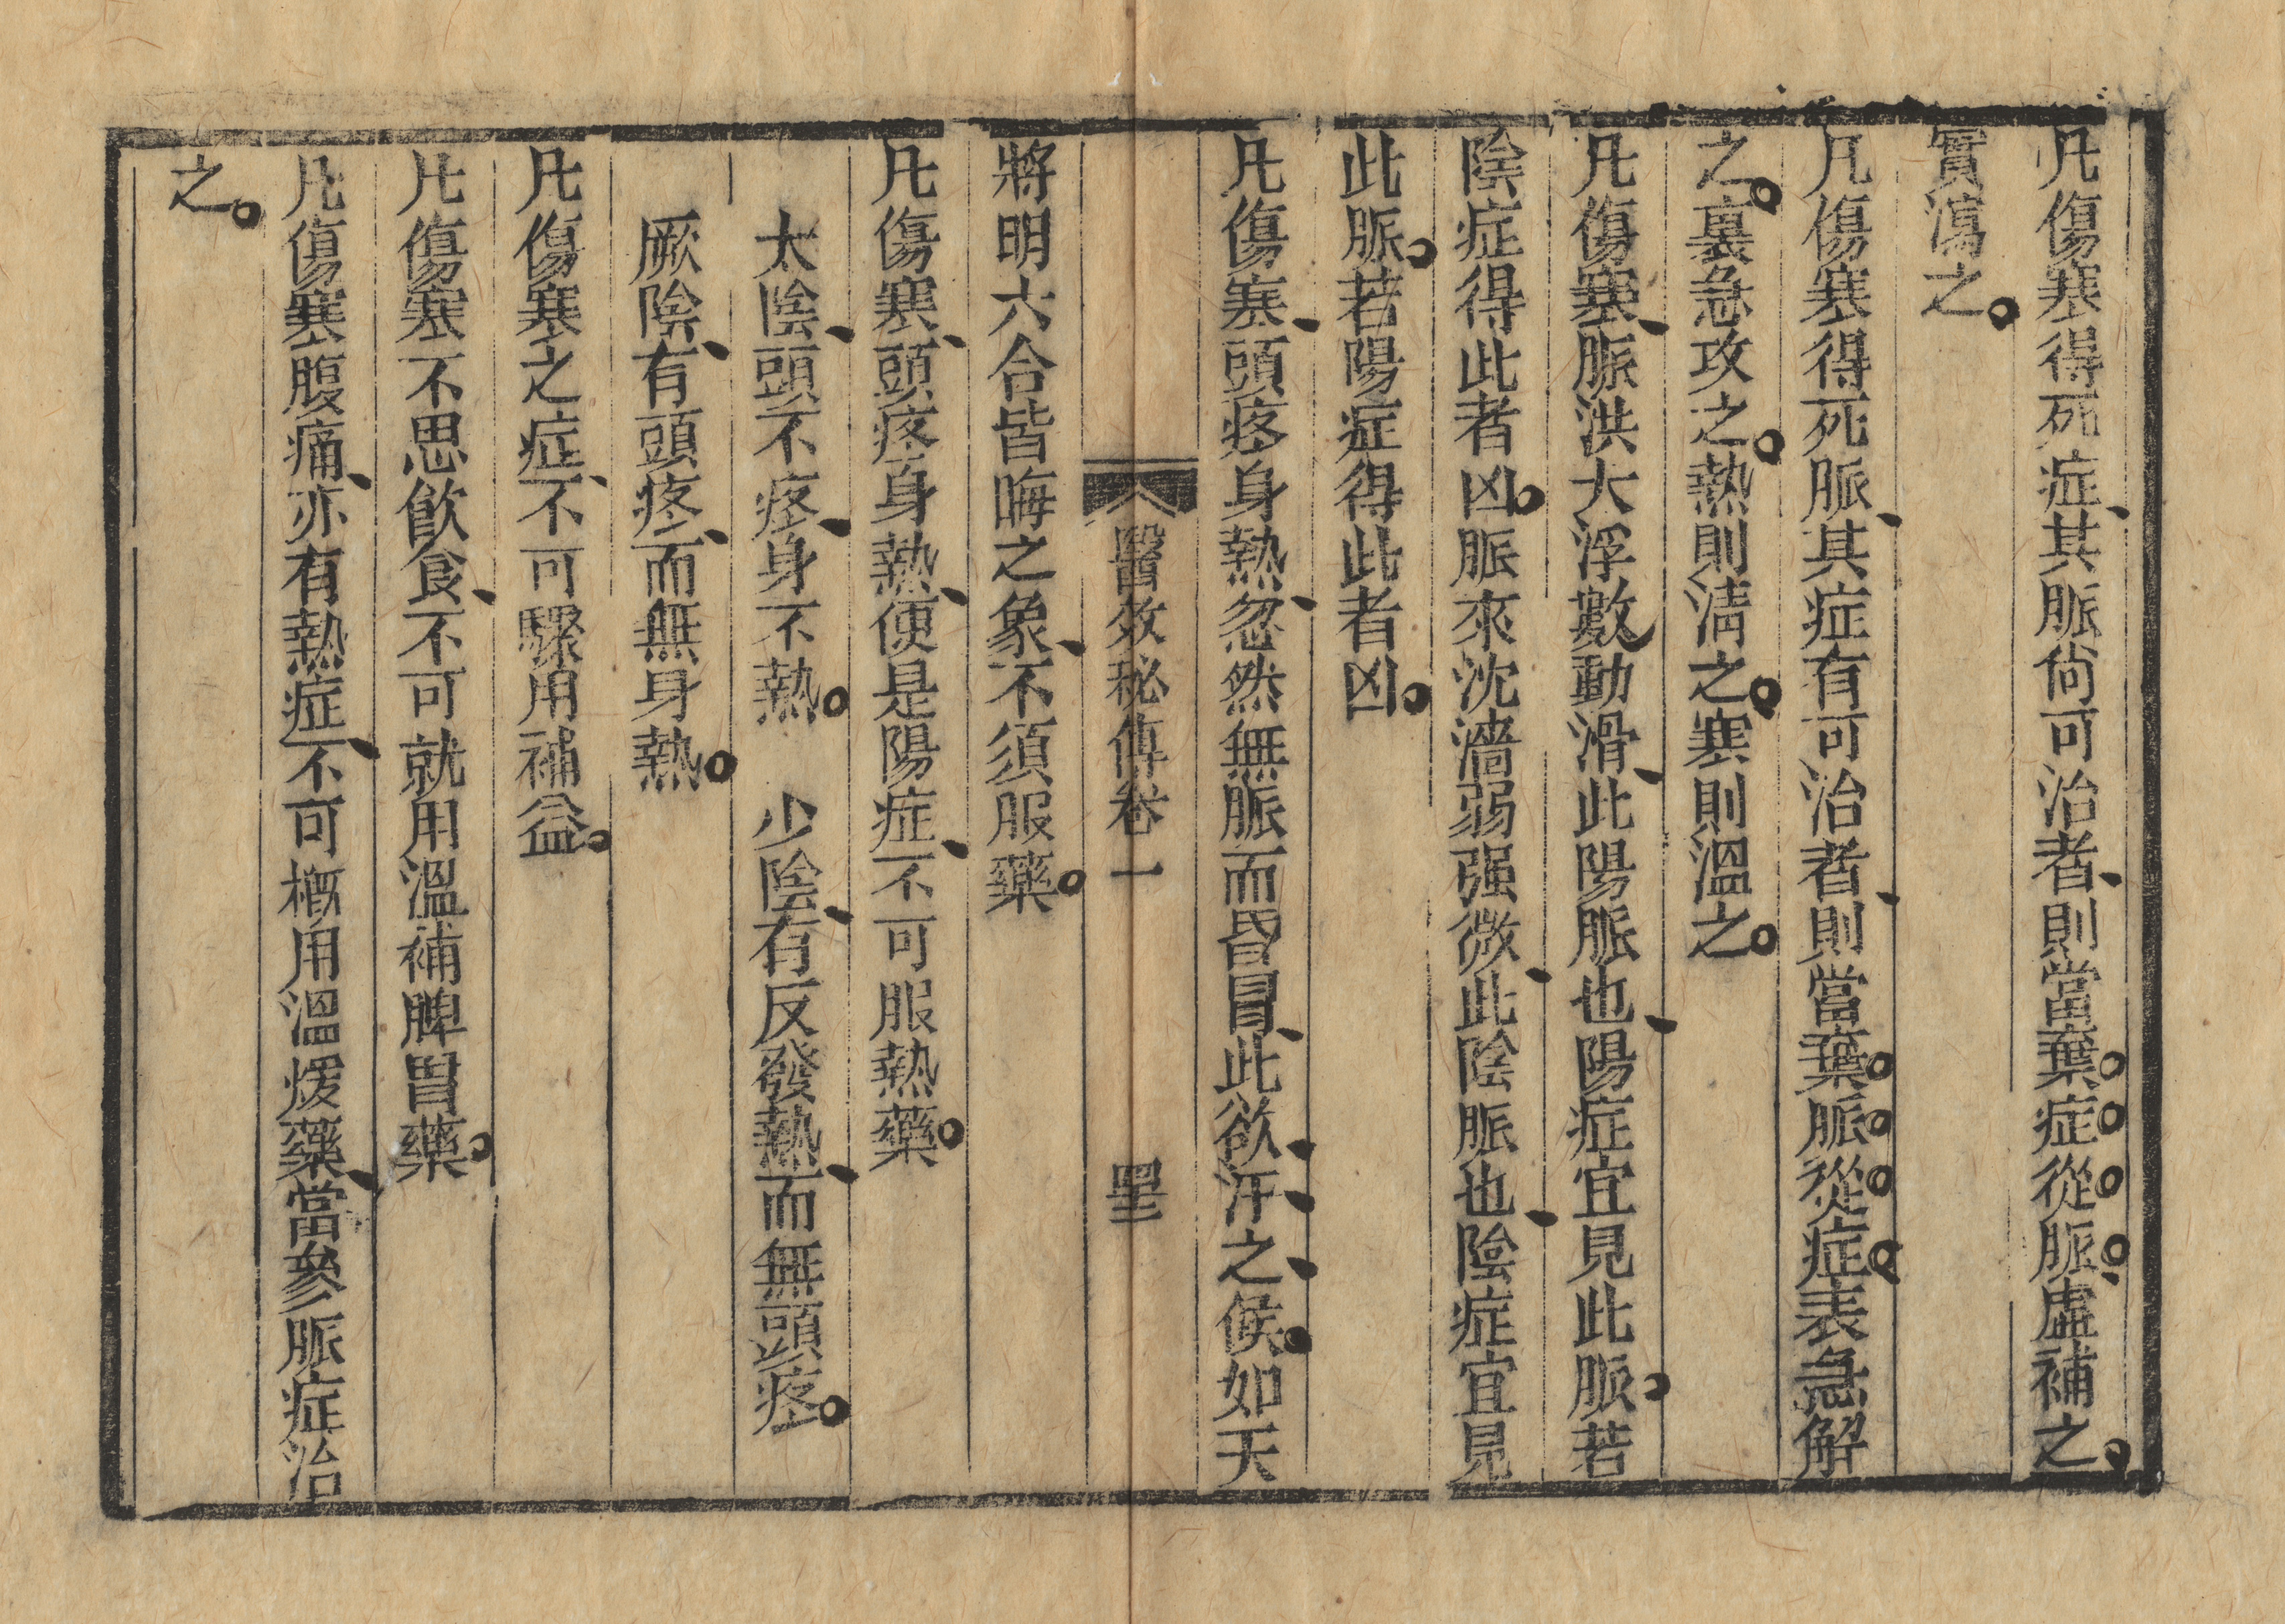 凡傷寒得死症、其脈尙可治者、則當棄。症。從。脈。虛補之。
實瀉之。
凡傷寒得死脈、其症有可治者、則當棄。脈。從。症。表急解
之。裏急攻之。熱則淸之。寒則溫之。
凡傷寒、脈洪大浮數動滑、此陽脈也、陽症宜見此脈。若
陰症得此者凶。脈來沈濇弱强微、此陰脈也、陰症宜見
此脈。若陽症得此者凶。
凡傷寒、頭疼身熱、忽然無脈而昏冒、此欲、汗、之、候。如天
醫效秘傳卷一 四三
將明六合皆晦之象、不須服藥。
凡傷寒、頭疼身熱、便是陽症、不可服熱藥。
太陰、頭不疼、身不熱。 少陰、有反發熱、而無頭疼。
厥陰、有頭疼、而無身熱。
凡傷寒之症、不可驟用補益。
凡傷寒不思飮食、不可就用溫補脾胃藥。
凡傷寒腹痛、亦有熱症、不可槪用溫煖藥、當參脈症治
之。